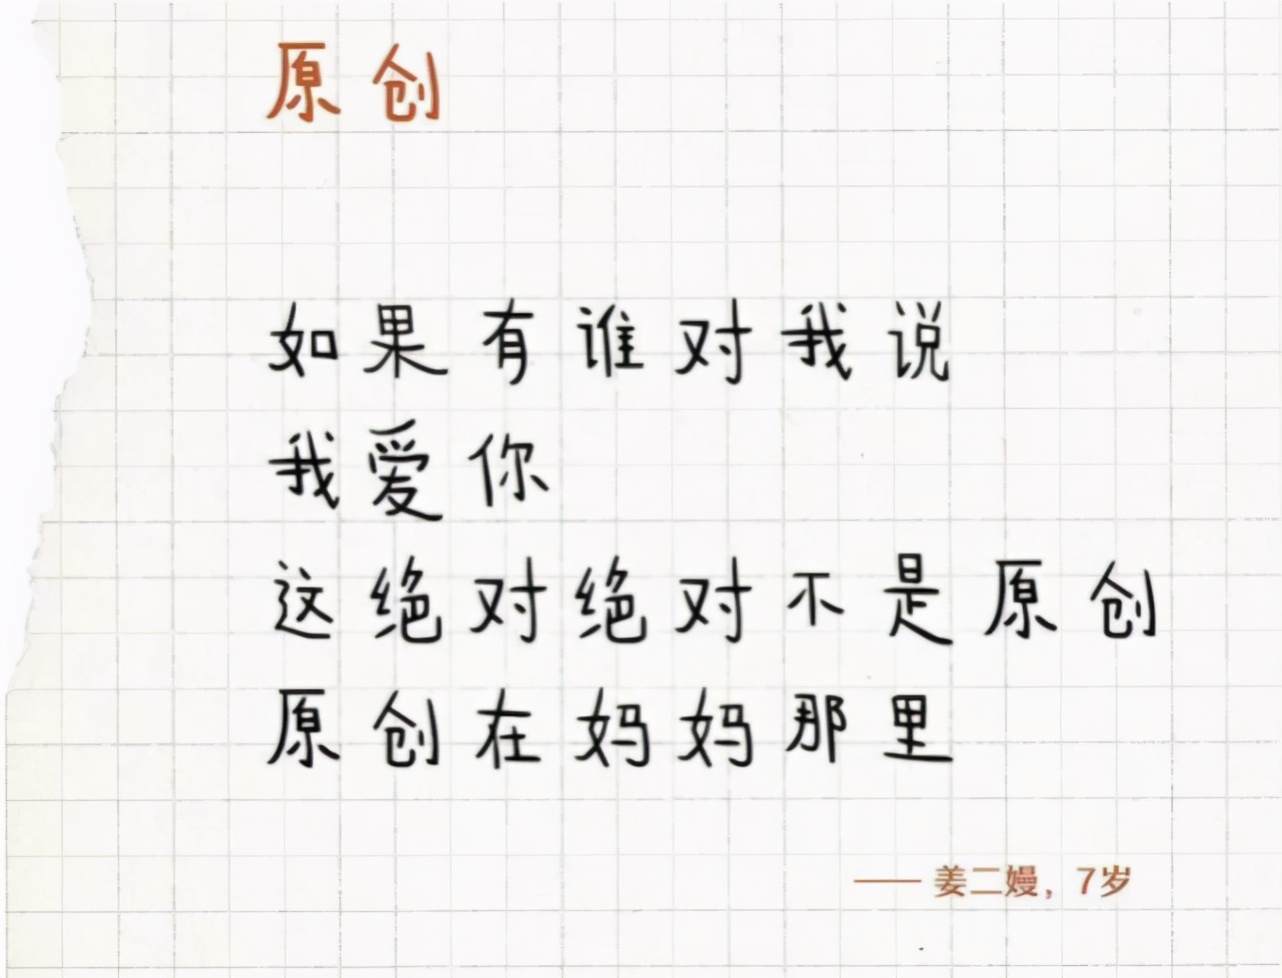 原创
如果有谁对我说
我爱你
这绝对绝对不是原创
原创在妈妈那里
—— 姜二嫚，7岁